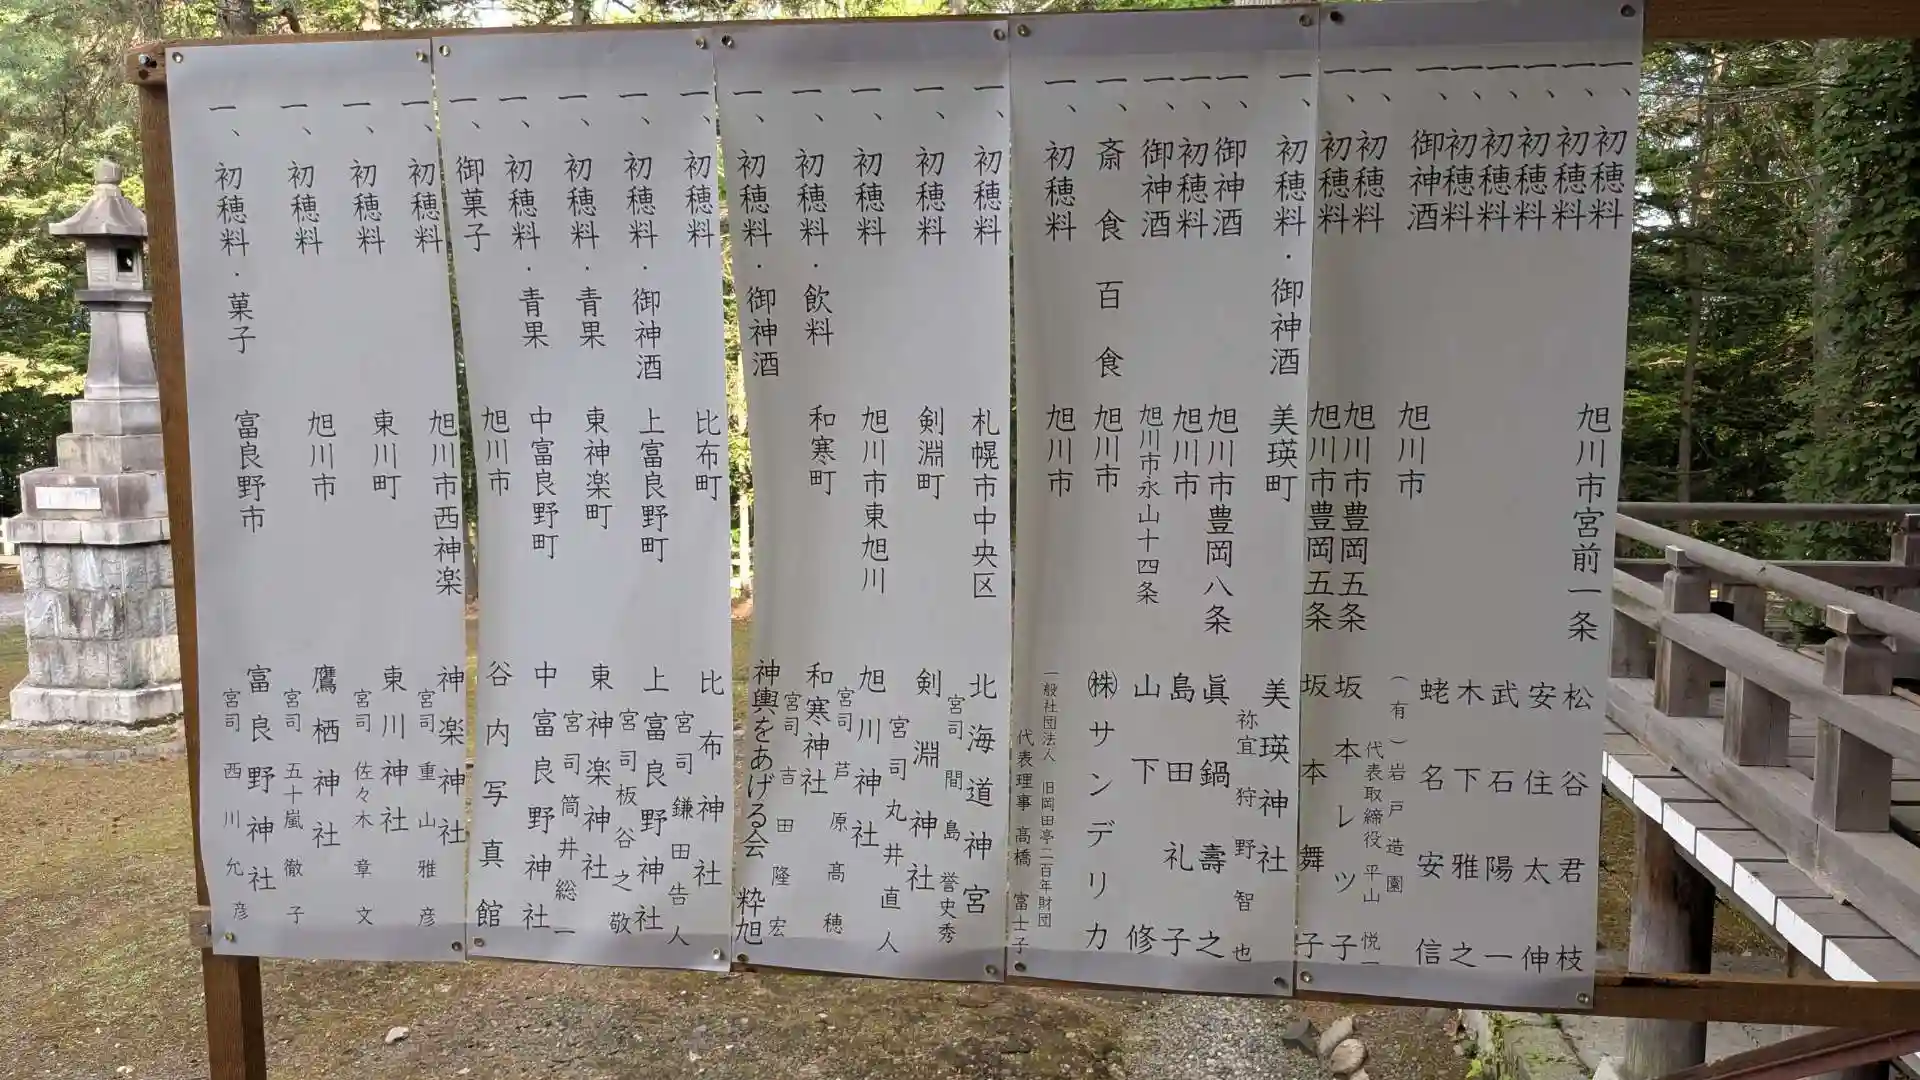 一、初穂料 旭川市宮前一条 松谷君枝
一、初穂料 安住太伸
一、初穂料 武石陽一
一、初穂料 木下雅之
一、初穂料 蛯名安信
一、御神酒 旭川市 (有)岩戸造園
代表取締役 平山悦一
一、初穂料 旭川市豊岡五条 坂本レツ子
一、初穂料 旭川市豊岡五条 坂本舞子
一、初穂料・御神酒 美瑛町 美瑛神社
祢宜 狩野智也
一、御神酒 旭川市豊岡八条 眞鍋壽之
一、初穂料 旭川市 島田礼子
一、御神酒 旭川市永山十四条 山下修
一、斎食百食 旭川市 ㈱サンデリカ
一、初穂料 旭川市 一般社団法人 旧岡田亭二百年財団
代表理事 髙橋富士子
一、初穂料 札幌市中央区 北海道神宮
宮司 間島誉史秀
一、初穂料 剣淵町 剣淵神社
宮司 丸井直人
一、初穂料 旭川市東旭川 旭川神社
宮司 芦原髙穂
一、初穂料・飲料 和寒町 和寒神社
宮司 吉田隆宏
一、初穂料・御神酒 神輿をあげる会 粋旭
一、初穂料 比布町 比布神社
宮司 鎌田告人
一、初穂料・御神酒 上富良野町 上富良野神社
宮司 板谷之敬
一、初穂料・青果 東神楽町 東神楽神社
宮司 筒井総一
一、初穂料・青果 中富良野町 中富良野神社
一、御菓子 旭川市 谷内写真館
一、初穂料 旭川市西神楽 神楽神社
宮司 重山雅彦
一、初穂料 東川町 東川神社
宮司 佐々木章文
一、初穂料 旭川市 鷹栖神社
宮司 五十嵐徹子
一、初穂料・菓子 富良野市 富良野神社
宮司 西川允彦